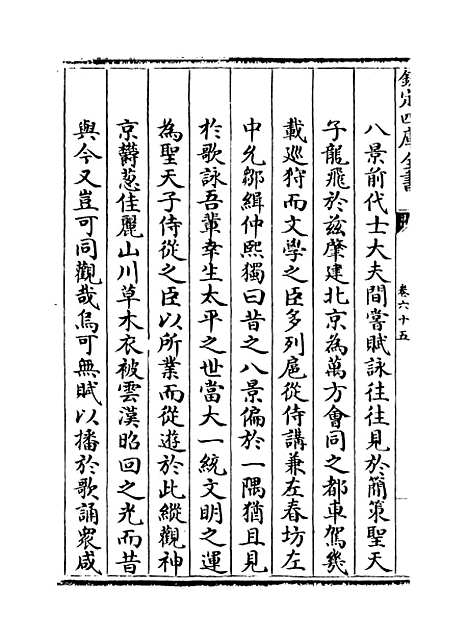 欽定四庫全書
卷六十五
八景前代士大夫間嘗賦詠往往見於簡策聖天
子龍飛於茲肇建北京為萬方會同之都車駕幾
載巡狩而文學之臣多列扈從侍講兼左春坊左
中允鄒緝仲熙獨曰昔之八景偏於一隅猶且見
於歌詠吾輩幸生太平之世當大一統文明之運
為聖天子侍從之臣以所業而從遊於此縱觀神
京鬱葱佳麗山川草木衣被雲漢昭回之光而昔
與今又豈可同觀哉烏可無賦以播於歌誦衆咸